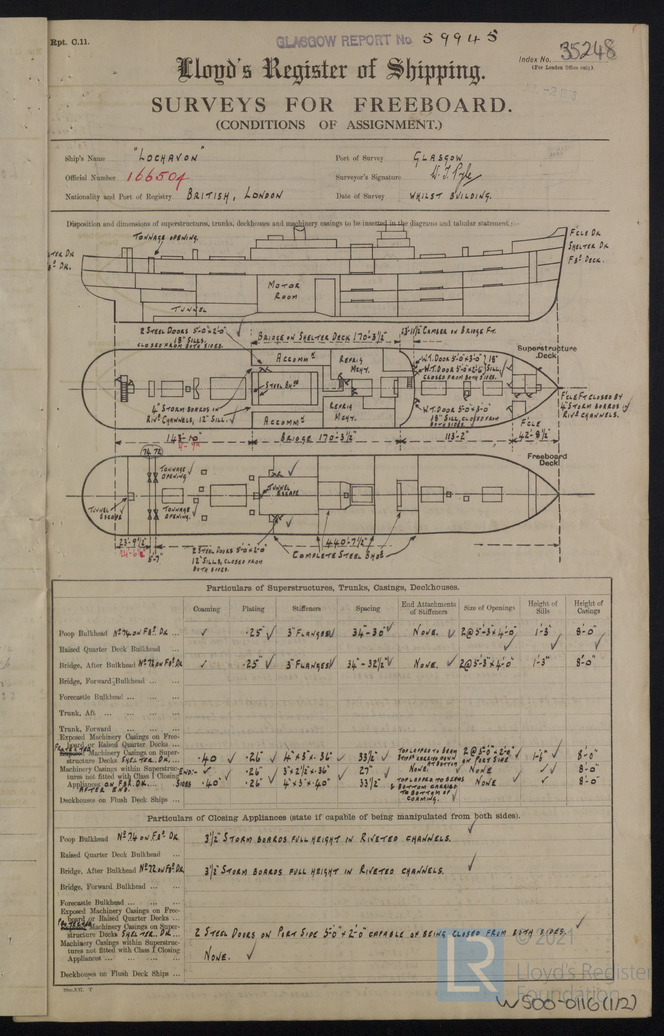 Rpt. C.11.
GLASGOW REPORT No 59945
Index No. 35248
(For London Office only).
Lloyd's Register of Shipping.
SURVEYS FOR FREEBOARD.
(CONDITIONS OF ASSIGNMENT.)
Ship's Name "LOCHAVON" Port of Survey GLASGOW
Official Number 166504 Surveyor's Signature
Nationality and Port of Registry BRITISH, LONDON Date of Survey WHILST BUILDING.
Disposition and dimensions of superstructures, trunks, deckhouses and machinery casings to be inserted in the diagrams and tabular statement:—
TONNAGE OPENING.
F'CLE DK
SHELTER DK
FBD. DECK.
MOTOR ROOM
TUNNEL
2 STEEL DOORS 5'-0"x2'-0"
18" SILLS.
CLOSED FROM BOTH SIDES.
BRIDGE ON SHELTER DECK 170'-3½"
CAMBER ON BRIDGE FT.
Superstructure Deck
ACCOMMN
REFRIG MCHY.
4" STORM BOARDS IN
RIVD CHANNELS, 12" SILL.
ACCOMMN
REFRIG MCHY.
W.T. DOOR 5'-0"x3'-0"
18" SILL, CLOSED FROM
BOTH SIDES.
F'CLE FT CLOSED BY
4" STORM BOARDS IN
RIVD CHANNELS.
143'-10" BRIDGE 170'-3½" 113'-2" F'CLE 42'-8½"
Freeboard Deck
74 72
TONNAGE OPENING
TUNNEL ESCAPE
TUNNEL ESCAPE
TONNAGE OPENING.
23'-9½"
5'-7"
2 STEEL DOORS 5'-0"x2'-0"
12" SILLS, CLOSED FROM
BOTH SIDES.
440'-7½"
COMPLETE STEEL BHDS
Particulars of Superstructures, Trunks, Casings, Deckhouses.
Coaming Plating Stiffeners Spacing End Attachments of Stiffeners Size of Openings Height of Sills Height of Casings
Poop Bulkhead No 74 ON FBD. DK ... ✓ .25" ✓ 3" FLANGES ✓ 34"-30" ✓ NONE. ✓ 2@5'-3"x4'-0" 1'-3" 8'-0"
Raised Quarter Deck Bulkhead
Bridge, After Bulkhead No 72 ON FBD. DK ✓ .25" ✓ 3" FLANGES ✓ 34"-32½" ✓ NONE. ✓ 2@5'-3"x4'-0" 1'-3" 8'-0"
Bridge, Forward Bulkhead ...
Forecastle Bulkhead ...
Trunk, Aft ...
Trunk, Forward ...
Exposed Machinery Casings on Freeboard or Raised Quarter Decks ...
Machinery Casings on Superstructure Decks SHELTER DK. ... .40 .26" 4"x3"x.36" 33½" ✓ 2@5'-0"x2'-0" ON PORT SIDE 1'-6" 8'-0"
Machinery Casings within Superstructures not fitted with Class I Closing Appliances ON FBD. DK. AFTER END.
ENDS ✓ .26" 3"x2½"x.36" 27" NONE. NONE ✓ 8'-0"
SIDES .40" .26" 4"x3"x.40" 33½" TOP LAPPED TO BEAMS & BOTTOM CARRIED TO BOTTOM OF COAMING. NONE ✓ 8'-0"
Deckhouses on Flush Deck Ships ...
Particulars of Closing Appliances (state if capable of being manipulated from both sides).
Poop Bulkhead No 74 ON FBD. DK 3½" STORM BOARDS FULL HEIGHT IN RIVETED CHANNELS. ✓
Raised Quarter Deck Bulkhead ...
Bridge, After Bulkhead No 72 ON FBD. DK 3½" STORM BOARDS FULL HEIGHT IN RIVETED CHANNELS. ✓
Bridge, Forward Bulkhead ...
Forecastle Bulkhead ...
Exposed Machinery Casings on Freeboard or Raised Quarter Decks ...
Machinery Casings on Superstructure Decks SHELTER DK. ... 2 STEEL DOORS ON PORT SIDE 5'-0"x2'-0" CAPABLE OF BEING CLOSED FROM BOTH SIDES. ✓
Machinery Casings within Superstructures not fitted with Class I Closing Appliances ... NONE. ✓
Deckhouses on Flush Deck Ships ...
© 2021
LR
Lloyd's Register
Foundation
W500-0116(1/2)